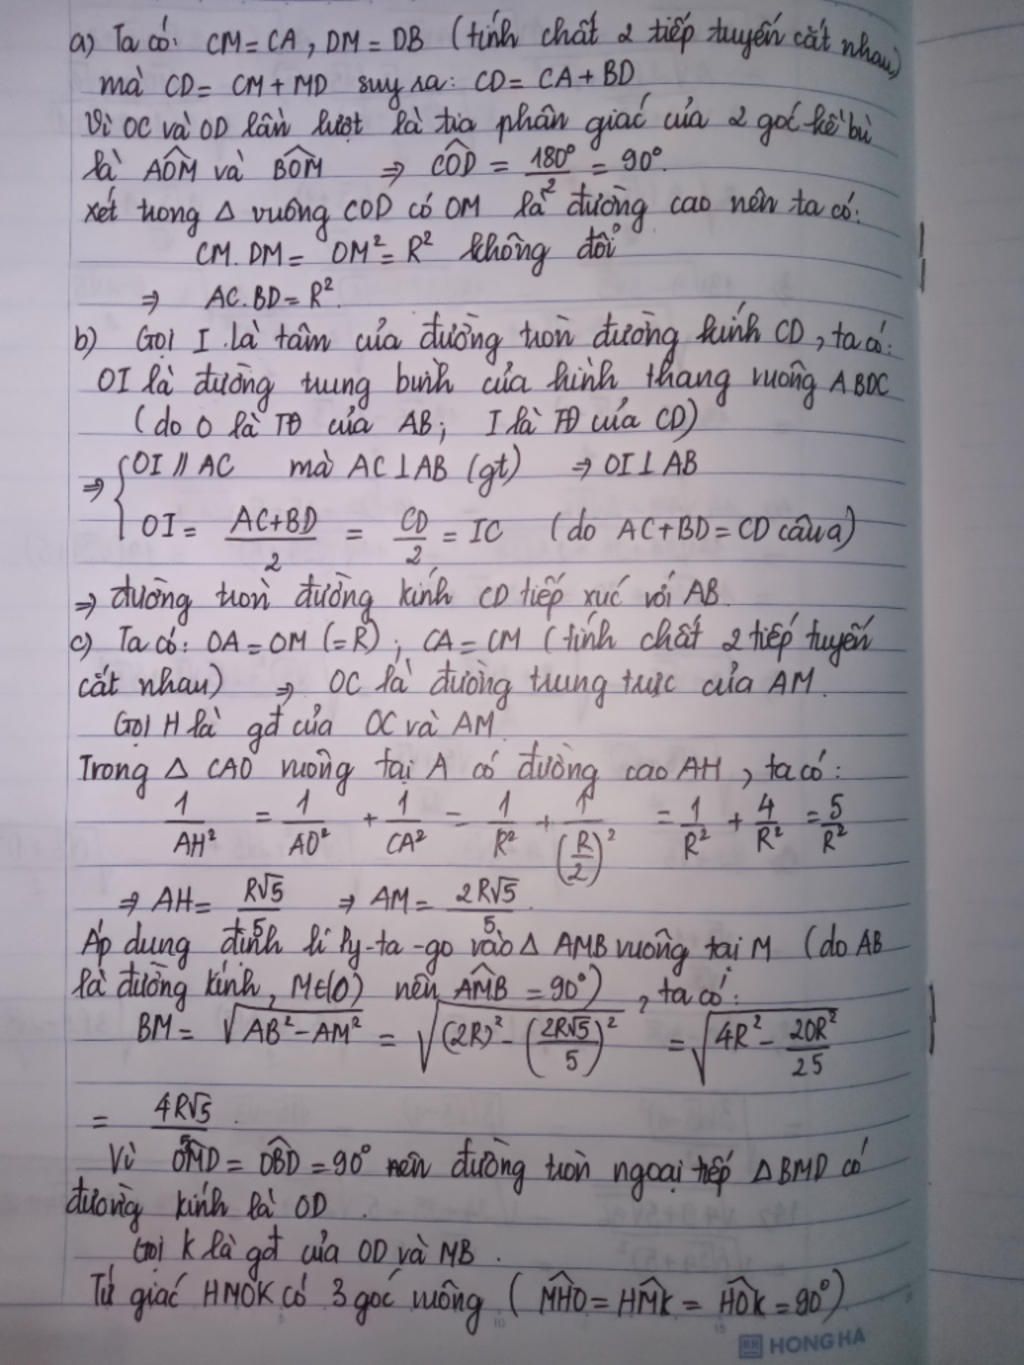 a) Ta có: CM = CA, DM = DB (tính chất 2 tiếp tuyến cắt nhau)
mà CD = CM + MD suy ra: CD = CA + BD
Vì OC và OD lần lượt là tia phân giác của 2 góc kề bù
là AÔM và BÔM ⇒ CÔD = 180°/2 = 90°.
xét trong Δ vuông COD có OM là đường cao nên ta có:
CM. DM = OM² = R² không đổi
⇒ AC.BD = R².
b) Gọi I là tâm của đường tròn đường kính CD, ta có:
OI là đường trung bình của hình thang vuông ABDC
(do O là TĐ của AB; I là TĐ của CD)
⇒ { OI // AC mà AC ⊥ AB (gt) ⇒ OI ⊥ AB
OI = (AC+BD)/2 = CD/2 = IC (do AC+BD = CD câu a)
⇒ đường tròn đường kính CD tiếp xúc với AB.
c) Ta có: OA = OM (=R); CA = CM (tính chất 2 tiếp tuyến
cắt nhau) ⇒ OC là đường trung trực của AM.
Gọi H là gđ của OC và AM.
Trong Δ CAO vuông tại A có đường cao AH, ta có:
1/AH² = 1/AO² + 1/CA² = 1/R² + 1/(R/2)² = 1/R² + 4/R² = 5/R²
⇒ AH = R√5/5 ⇒ AM = 2R√5/5
Áp dụng định lí Py-ta-go vào Δ AMB vuông tại M (do AB
là đường kính, M∈(O) nên AM̂B = 90°), ta có:
BM = √(AB² − AM²) = √((2R)² − (2R√5/5)²) = √(4R² − 20R²/25)
= 4R√5/5.
Vì OM̂D = OB̂D = 90° nên đường tròn ngoại tiếp Δ BMD có
đường kính là OD.
Gọi K là gđ của OD và MB.
Tứ giác HMOK có 3 góc vuông (MĤO = HM̂K = HÔK = 90°)
HONG HA